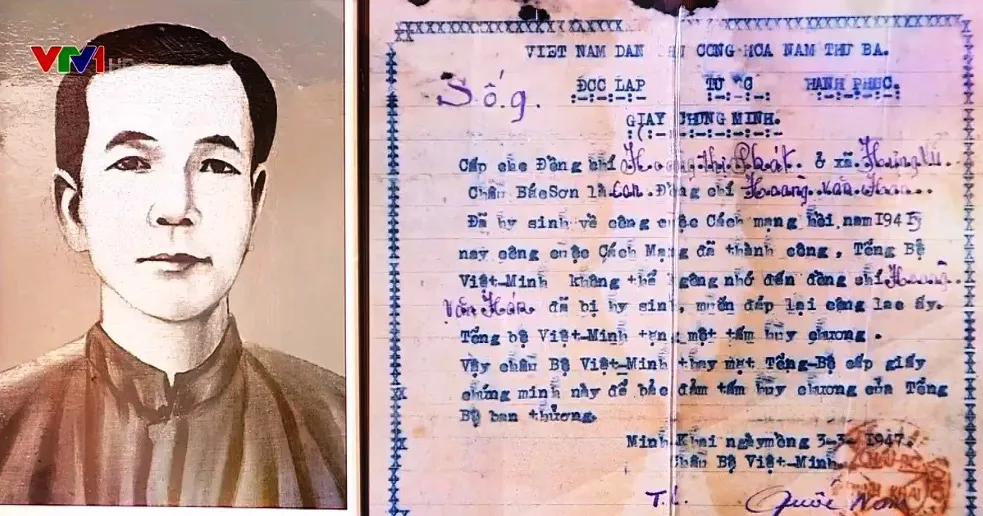 VTV1 HD
VIET NAM DAN CHU CONG HOA NAM THU BA.
Số 9.
ĐOC LAP TU DO HANH PHUC.
GIAY CHUNG MINH.
Cấp cho Đồng chí Hoang thị Phát ở xã Hưng Vũ
Châu Bác Sơn là con Đồng chí Hoang văn Hán
Đã hy sinh về công cuộc Cách mạng hồi năm 1941
nay công cuộc Cách Mạng đã thành công, Tổng Bộ
Việt-Minh không thể không nhớ đến đồng chí Hoang
Văn Hán đã bị hy sinh, muốn đáp lại công lao ấy.
Tổng bộ Việt-Minh tặng một tấm huy chương.
Vậy châu Bộ Việt-Minh thay mặt Tổng-Bộ cấp giấy
chứng minh này để bảo đảm tấm huy chương của Tổng
Bộ ban thưởng.
Minh Khai ngày mồng 3-3-1947.
Châu Bộ Việt-Minh
T.L. Quốc Nam